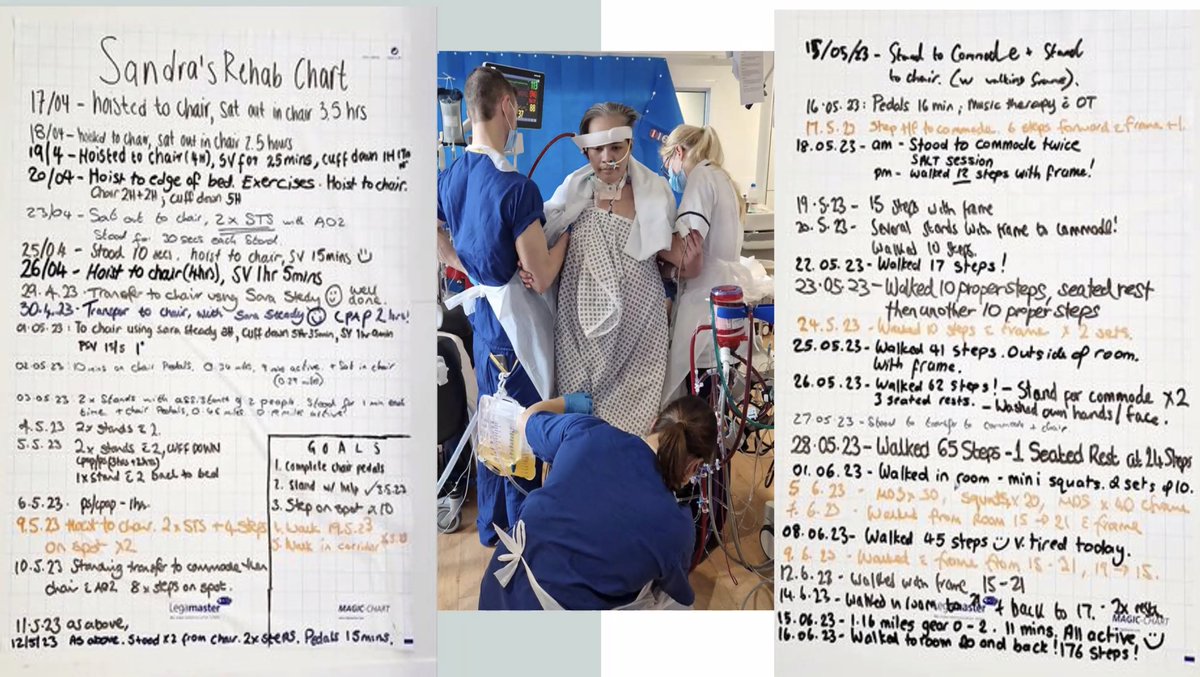 Sandra's Rehab Chart
17/04 - hoisted to chair, sat out in chair 3.5 hrs
18/04 - hoisted to chair, sat out in chair 2.5 hours
19/4 - Hoisted to chair (4H), SV for 25 mins, cuff down 1H
20/04 - Hoist to edge of bed. Exercises. Hoist to chair.
Chair 2H+2H, cuff down 5H
23/04 - Sat out to chair, 2x STS with AO2
Stood for 30 secs each stand.
25/04 - Stood 10 secs. hoist to chair, SV 15mins
26/04 - Hoist to chair (4hrs), SV 1hr 5mins
29.4.23 - Transfer to chair using Sara Stedy well done.
30.4.23 - Transfer to chair, with Sara Steady CPAP 2 hrs!
01.05.23: To chair using sara steady, cuff down 5hr 35min, SV 1hr
PSV 12/5 1°
02.05.23: 10 mins on chair Pedals, 0.36 miles, 9 min active. + Sat in chair
(0.29 miles)
03.05.23 2x Stands with assistance of 2 people. Stood for 1 min each
time + chair Pedals, 0.46 miles
4.5.23 2x stands c̄ 2
5.5.23 2x stands c̄ 2, CUFF DOWN
1x Stand c̄ 2 back to bed
6.5.23 ps/cpap - 1hr.
9.5.23 Hoist to chair. 2x STS + 4 steps
on spot x2
10.5.23 Standing transfer to commode then
chair c̄ AO2 8x steps on spot.
11.5.23 as above,
12/5/23 As above. Stood x2 from chair. 2x steps. Pedals 15 mins.
GOALS
1. complete chair pedals
2. Stand w/ help ✓3.5.23
3. Step on spot x10
4. Walk 19.5.23
5. Walk in corridor
Legamaster
MAGIC-CHART
15/05/23 - Stand to Commode + Stand
to chair. (w walking frame).
16.05.23: Pedals 16 min, music therapy c̄ OT
17.5.23 Step t/f to commode. 6 steps forward c̄ frame +1.
18.05.23 - am - Stood to commode twice
SALT SESSION
pm - walked 12 steps with frame!
19.5.23 - 15 steps with frame
20.5.23 - Several stands with frame to commode!
Walked 10 steps.
22.05.23 - Walked 17 steps!
23.05.23 - Walked 10 proper steps, seated rest
then another 10 proper steps
24.5.23 - Walked 10 steps c̄ frame x 2 sets.
25.05.23 - Walked 41 steps. Outside of room.
with frame.
26.05.23 - Walked 62 steps! - Stand for commode x2
3 seated rests. - Washed own hands/face.
27.05.23 - Stood to transfer to commode + chair
28.05.23 - Walked 65 Steps - 1 Seated Rest at 24 Steps
01.06.23 - Walked in room - mini squats. 2 sets of 10.
5.6.23 - MOS x 30, Squats x 20, MOS x 40 c frame
7.6.23 - Walked from Room 15 → 21 c̄ frame
08.06.23 - Walked 45 steps v. tired today.
9.6.23 - Walked c̄ frame from 15 - 21, 19 → 15.
12.6.23 - Walked with frame 15 - 21
14.6.23 - Walked in room to 21 + back to 17. - 2x rests
Legamaster
MAGIC-CHART
15.06.23 - 1.16 miles gear 0 - 2. 11 mins. All active
16.06.23 - Walked to room 20 and back! 176 steps!